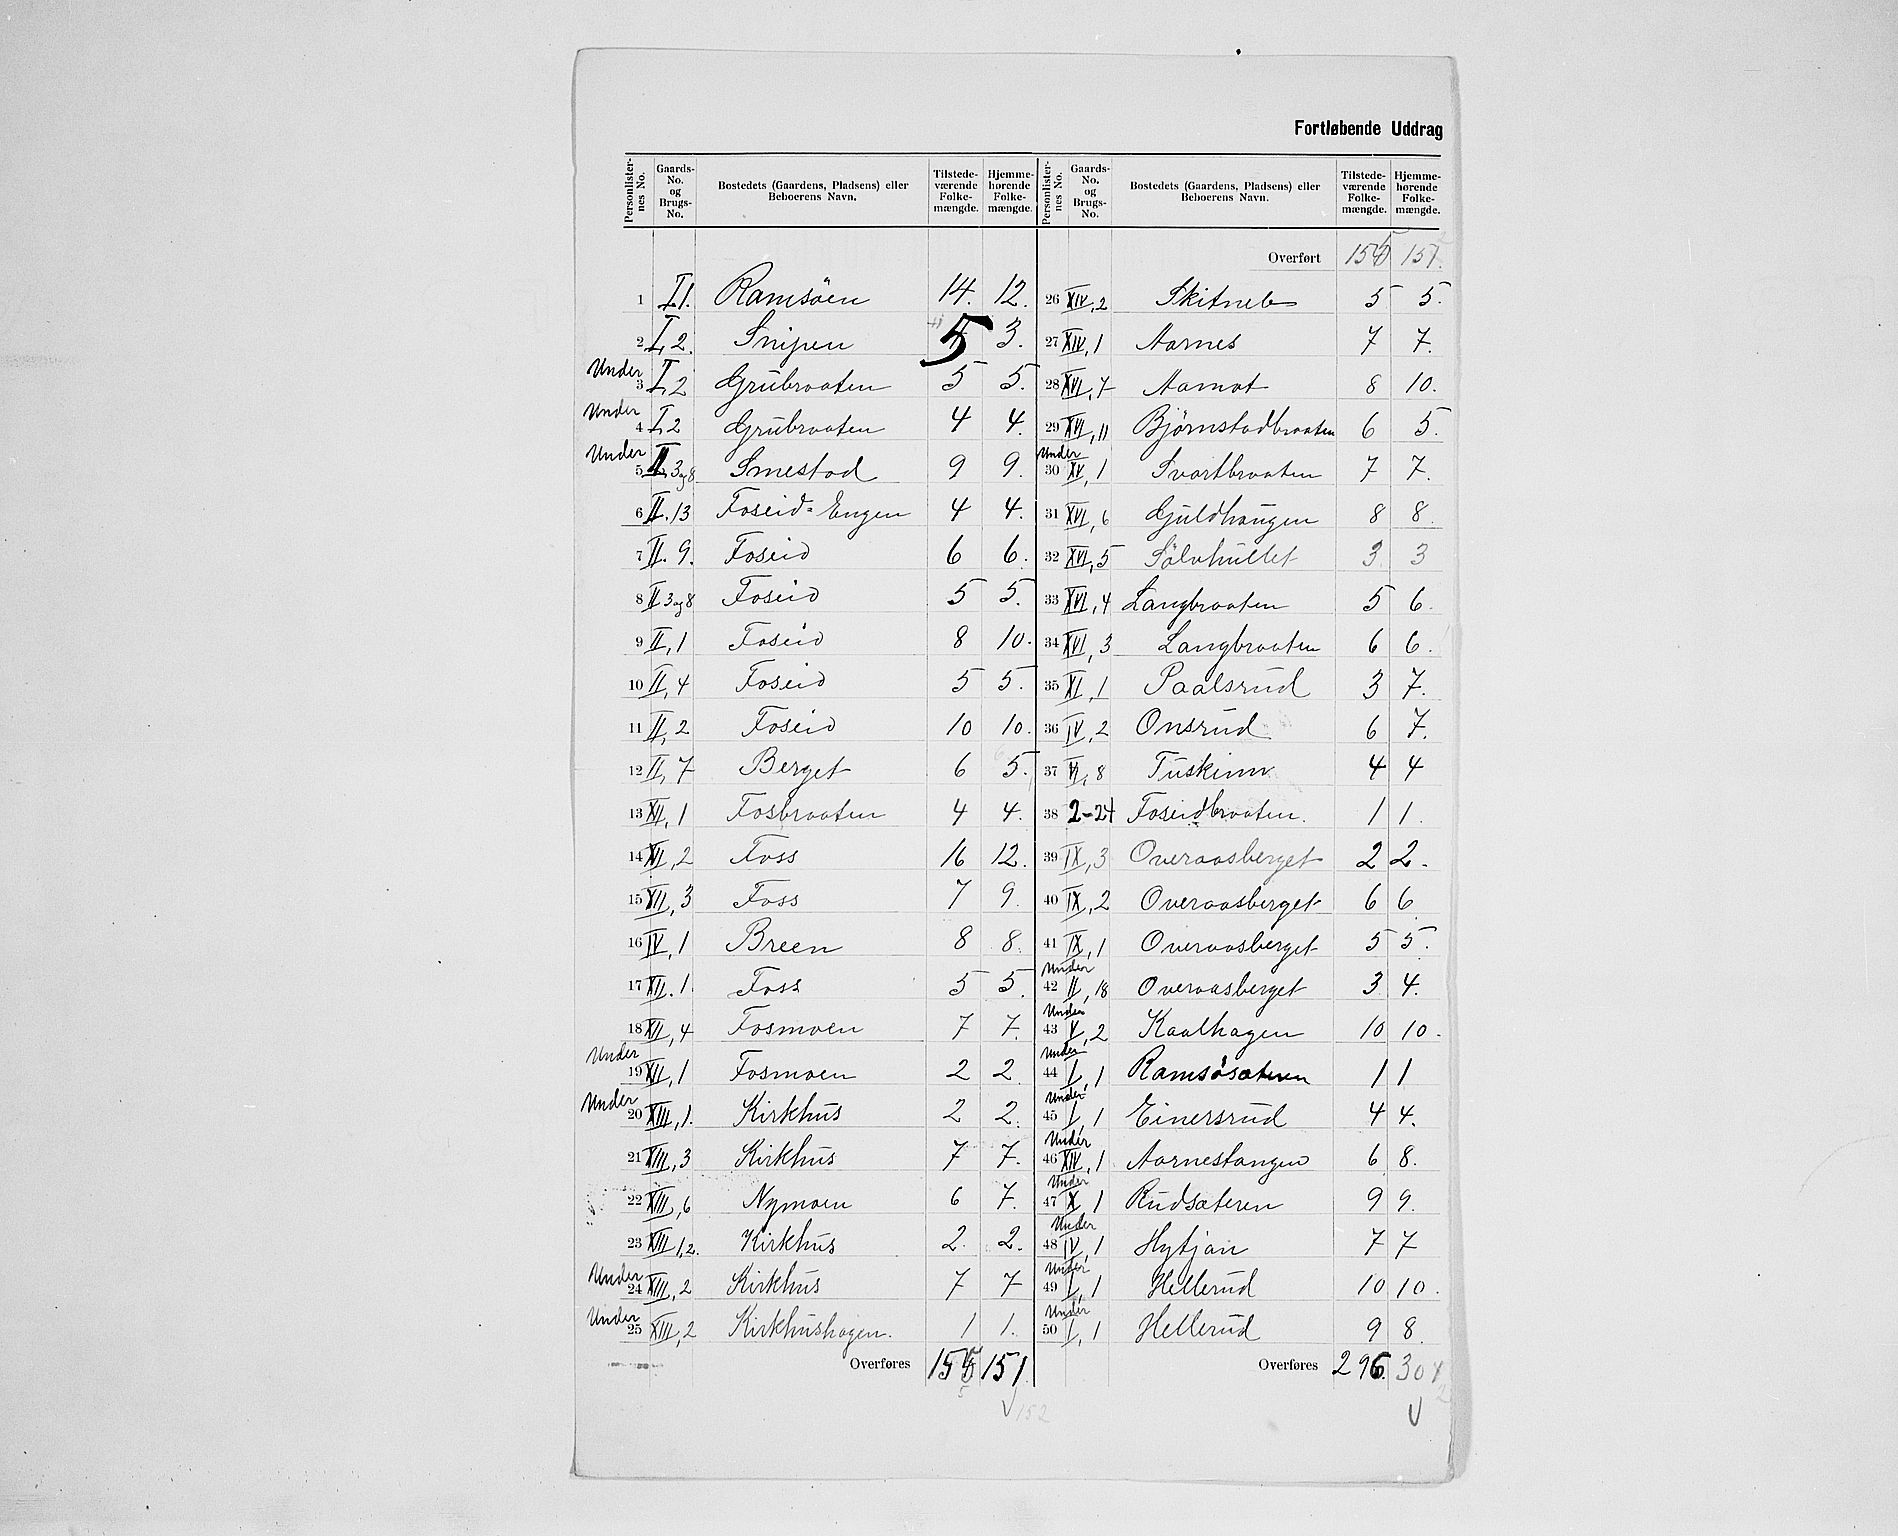 Fortløbende Uddrag
Personlisternes No. | Gaards-No. og Brugs-No. | Bostedets (Gaardens, Pladsens) eller Beboerens Navn. | Tilstedeværende Folkemængde. | Hjemmehørende Folkemængde.
1 I 1. Ramsöen 14. 12.
2 I, 2. Snipen 5 3.
Under 3 I, 2 Grubraaten 5 5.
Under 4 I, 2 Grubraaten 4 4.
Under 5 II, 3 og 8 Smestad 9 9.
6 II. 13 Foseid-Engen 4 4.
7 II. 9. Foseid 6 6.
8 II 3 og 8 Foseid 5 5.
9 II, 1 Foseid 8 10.
10 II, 4 Foseid 5 5.
11 II, 2 Foseid 10 10.
12 II, 7 Berget 6 5.
13 XII, 1 Fosbraaten 4 4.
14 XII, 2 Foss 16 12.
15 XII, 3 Foss 7 9.
16 IV, 1 Breen 8 8.
17 XII. 1. Foss 5 5.
18 XII, 4 Fosmoen 7 7.
Under 19 XII, 1 Fosmoen 2 2
Under 20 XIII, 1. Kirkhus 2 2.
21 XIII, 3 Kirkhus 7 7.
22 XIII, 6 Nymoen 6 7.
23 XIII 1,2. Kirkhus 2. 2.
Under 24 XIII, 2 Kirkhus 7 7
Under 25 XIII, 2 Kirkhushagen. 1 1.
Overføres 155 151.
152
Personlisternes No. | Gaards-No. og Brugs-No. | Bostedets (Gaardens, Pladsens) eller Beboerens Navn. | Tilstedeværende Folkemængde. | Hjemmehørende Folkemængde.
Overført 155 151.
26 XIV, 2 Skitneb 5 5.
27 XIV, 1 Aarnes 7 7.
28 XVI, 7 Aamot 8 10.
29 XVI, 11 Bjørnstadbraaten 6 5.
Under 30 XV, 1 Svartbraaten 7 7.
31 XVI, 6 Guldhaugen 8 8.
32 XVI, 5 Sölvhullet 3 3
33 XVI, 4 Langbraaten 5 6.
34 XVI, 3 Langbraaten 6 6.
35 XI, 1 Paalsrud 3 7.
36 IV, 2 Onsrud 6 7.
37 VI, 8 Tuskinn 4 4
38 2-24 Foseidbraaten. 1 1.
39 IX, 3 Overaasberget 2 2.
40 IX, 2 Overaasberget 6 6
41 IX, 1 Overaasberget 5 5.
Under 42 II, 18 Overaasberget 3 4.
Under 43 V, 2 Kaalhagen 10 10.
Under 44 I, 1 Ramsøsæteren 1 1
Under 45 I, 1 Einersrud 4 4.
Under 46 XIV, 1 Aarnestangen 6 8.
Under 47 X, 1 Rudsæteren 9 9.
Under 48 IV, 1 Hytjan 7 7
Under 49 I, 1 Hellerud 10 10.
Under 50 I, 1 Hellerud 9 8.
Overføres 296. 301
2